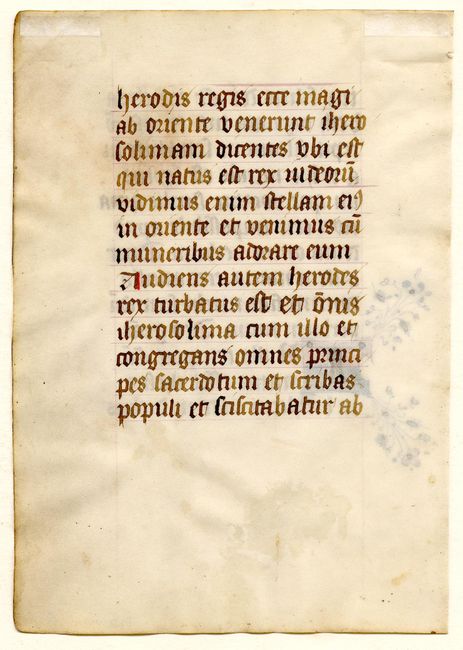 herodis regis ecce magi
ab oriente venerunt ihero
solimam dicentes vbi est
qui natus est rex iudeorū
vidimus enim stellam eiꝰ
in oriente et venimus cū
muneribus adorare eum
Audiens autem herodes
rex turbatus est et om̄is
iherosolima cum illo et
congregans omnes princi
pes sacerdotum et scribas
populi et sciscitabatur ab